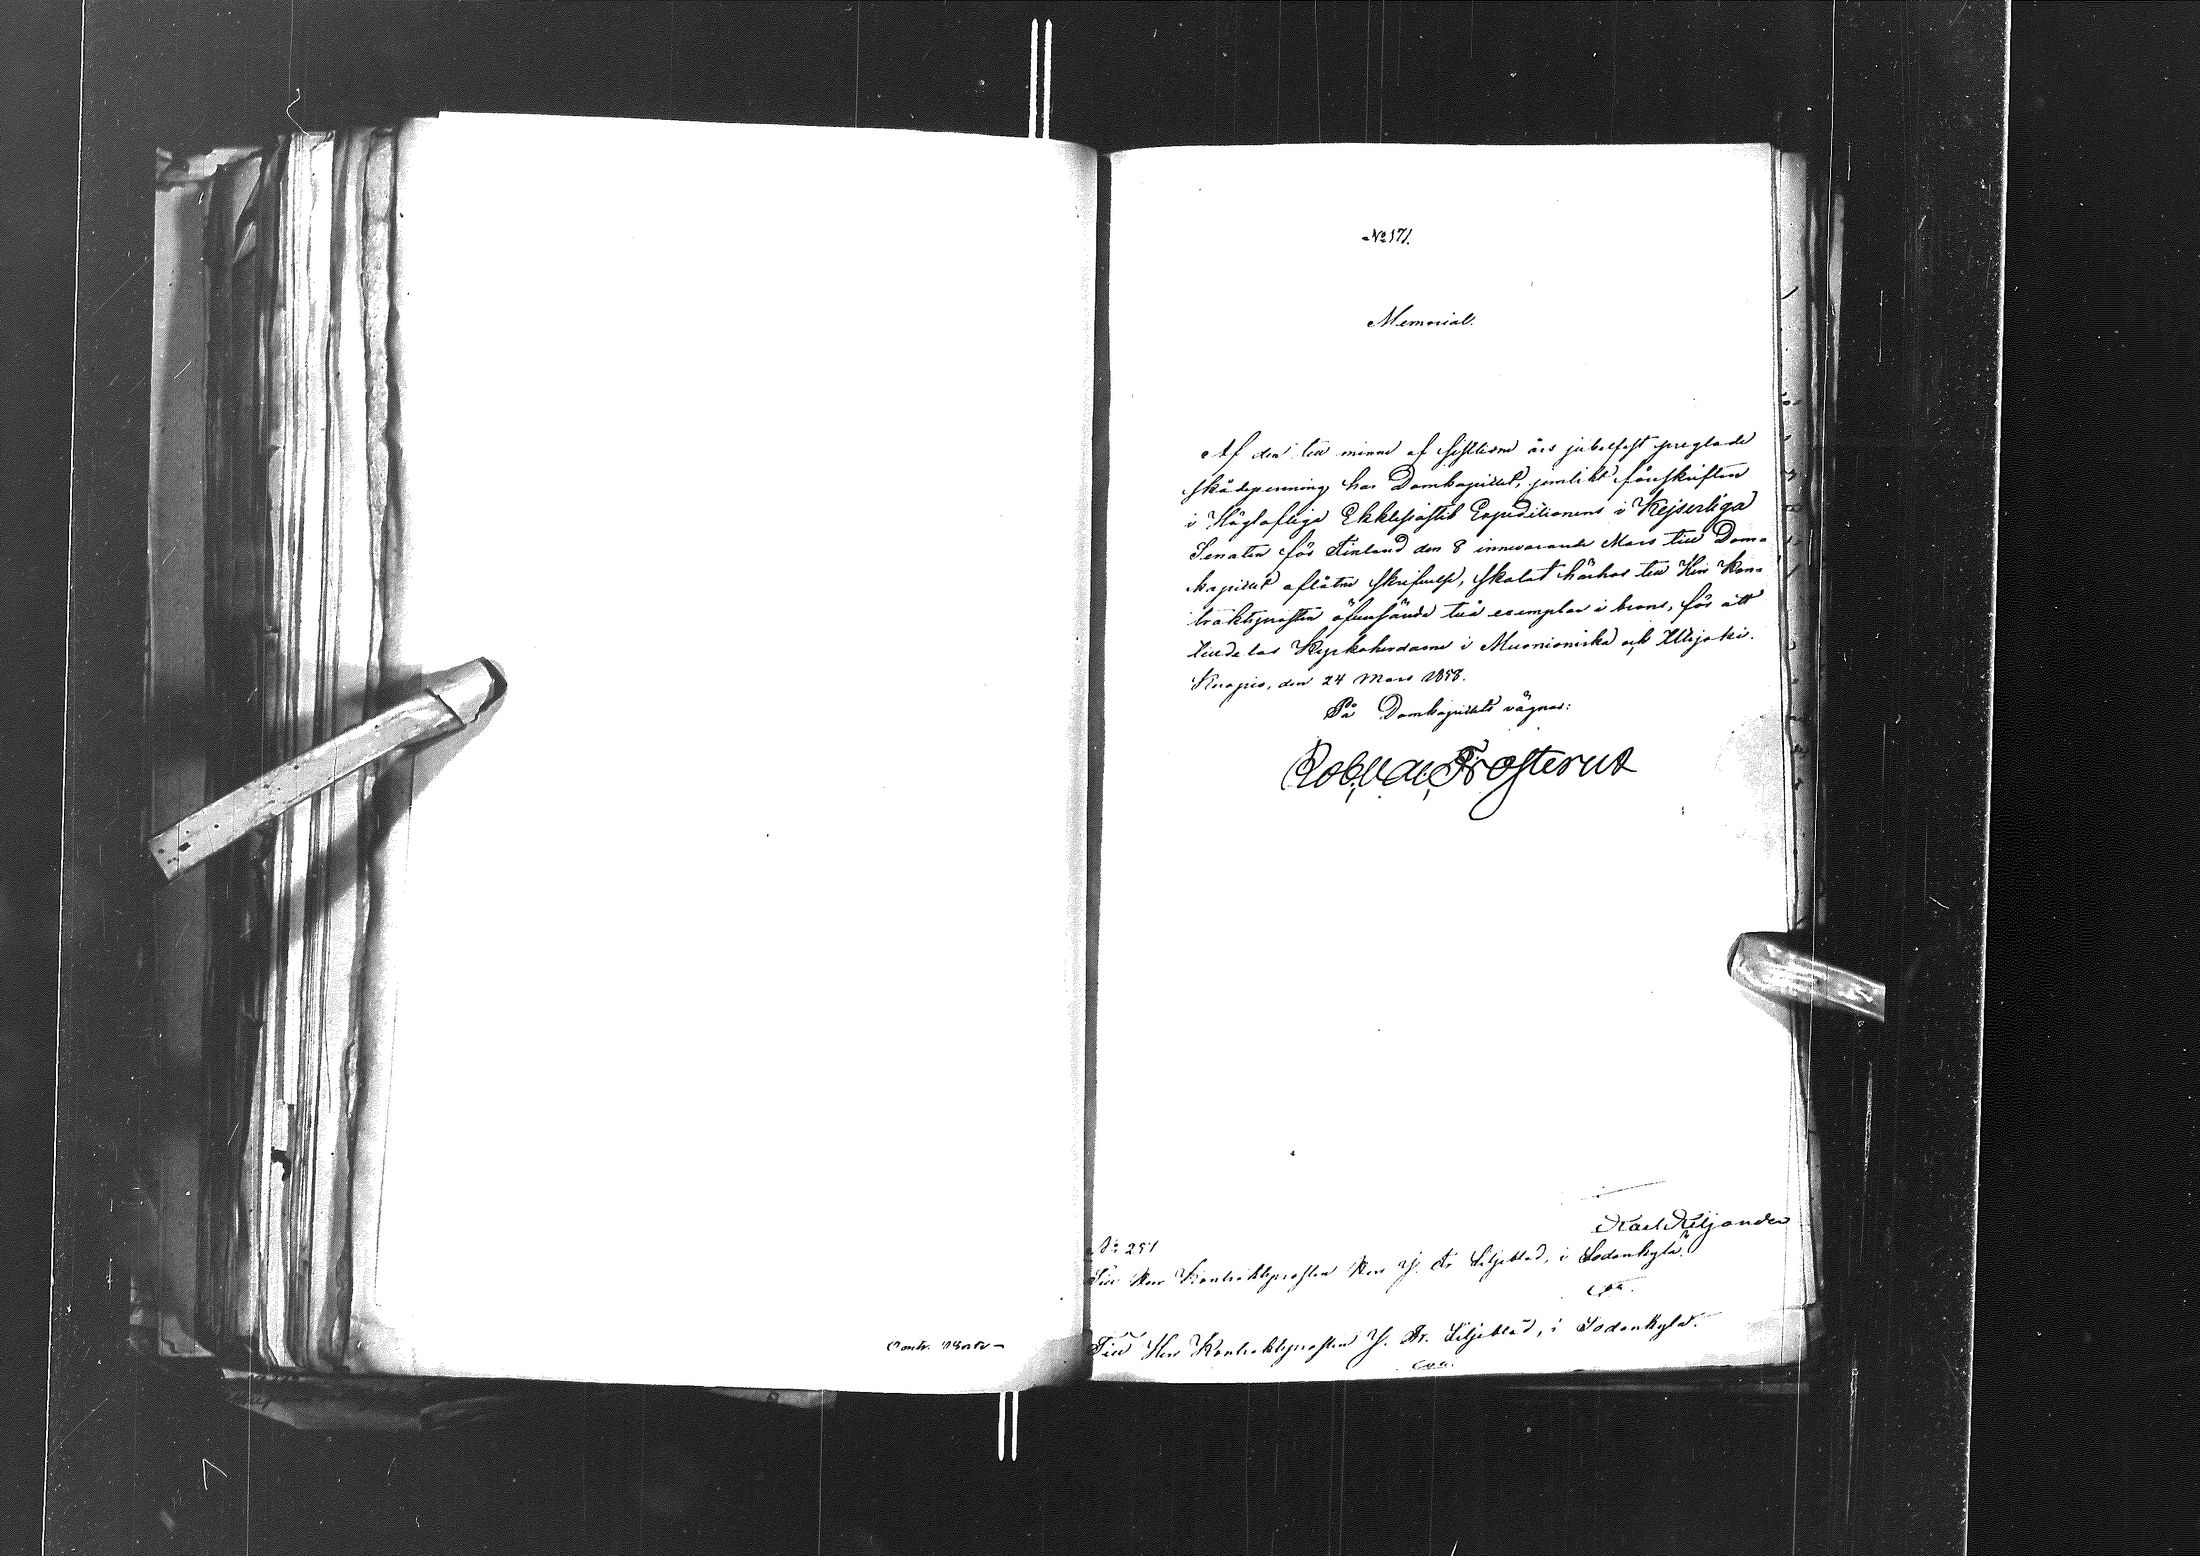 No 171.
Memorial.
Af den till minne af sistlidne års jubelfest preglade
skådepenning har Domkapitlet, jemlikt föreskriften
i Höglofliga Ekklesiastik Expeditionens i Kejserliga
Senaten för Finland den 8 innevarande Mars till Dom-
kapitlet aflåtne skrifvelse, skolat härhos till Herr Kon-
traktsprosten öfversända två exemplar i brons, för att
tilldelas Kyrkoherdarne i Muonioniska och Utsjoki.
Kuopio, den 24 Mars 1858.
På Domkapitlets vägnar:
Rob. Val. Frosterus
Karl Kiljander
No 251
Till Herr Kontraktsprosten Herr J. Fr. Liljeblad, i Sodankylä.
Till Herr Kontraktsprosten J. Fr. Liljeblad, i Sodankylä.